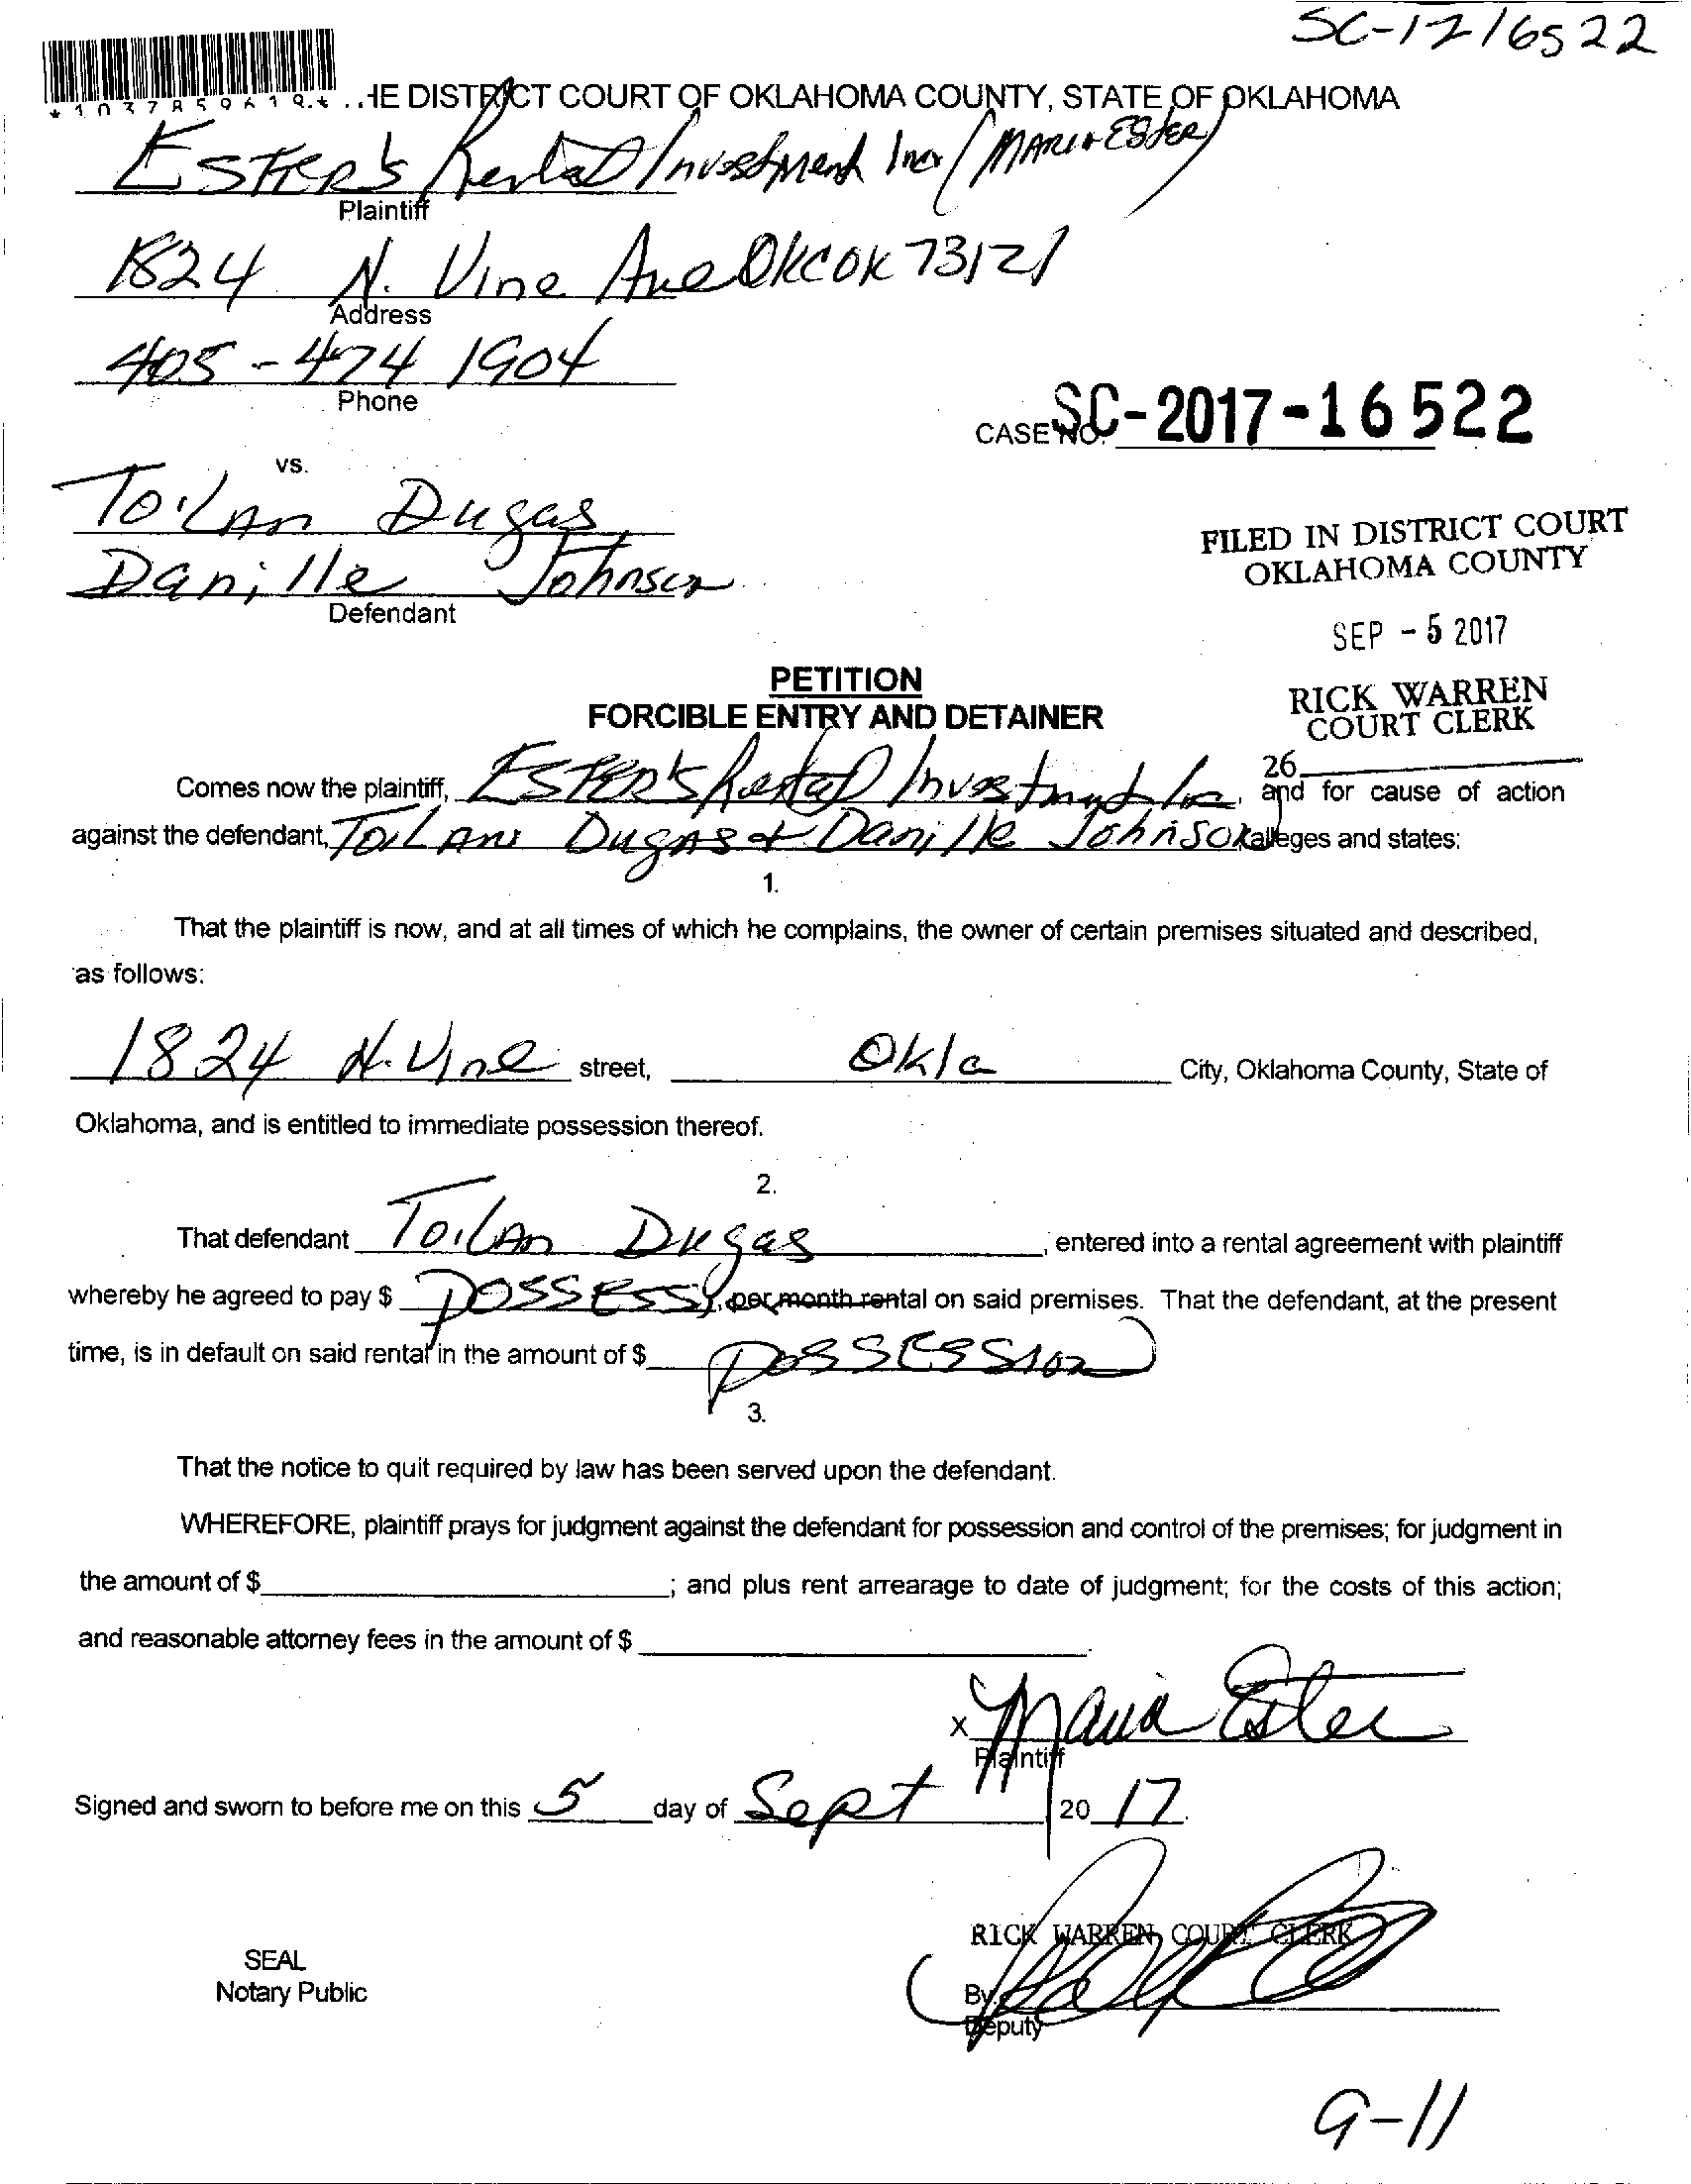 SC-17 16522
*1037859619*
HE DISTRICT COURT OF OKLAHOMA COUNTY, STATE OF OKLAHOMA
ESTER's Rental Investment Inc (MARIA ESTER)
Plaintiff
1824 N. Vine Ave OKC OK 73121
Address
405-474 1904
Phone
CASE NO. SC-2017-16522
vs.
Toilan Dugas
Danille Johnson
Defendant
FILED IN DISTRICT COURT
OKLAHOMA COUNTY
SEP - 5 2017
RICK WARREN
COURT CLERK
26
PETITION
FORCIBLE ENTRY AND DETAINER
Comes now the plaintiff, ESTER's Rental Investment Inc, and for cause of action
against the defendant, Toilani Dugas & Danille Johnson alleges and states:
1.
That the plaintiff is now, and at all times of which he complains, the owner of certain premises situated and described,
as follows:
1824 N. Vine street, Okla City, Oklahoma County, State of
Oklahoma, and is entitled to immediate possession thereof.
2.
That defendant Toilan Dugas, entered into a rental agreement with plaintiff
whereby he agreed to pay $ POSSESSY, per month rental on said premises. That the defendant, at the present
time, is in default on said rental in the amount of $ POSSESSION
3.
That the notice to quit required by law has been served upon the defendant.
WHEREFORE, plaintiff prays for judgment against the defendant for possession and control of the premises; for judgment in
the amount of $; and plus rent arrearage to date of judgment; for the costs of this action;
and reasonable attorney fees in the amount of $
x Maria Ester
Plaintiff
Signed and sworn to before me on this 5 day of Sept 20 17.
RICK WARREN, COURT CLERK
SEAL
Notary Public
By
Deputy
9-11